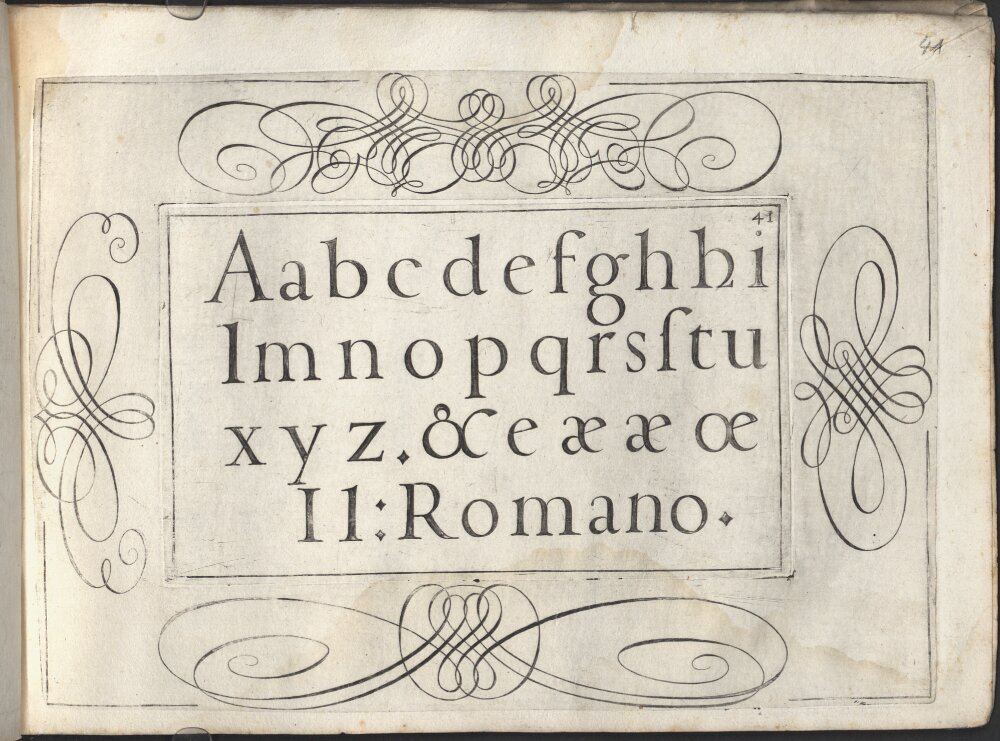 44
41
A a b c d e f g h h i
l m n o p q r s ſ t u
x y z . & e æ æ œ
Il : Romano .